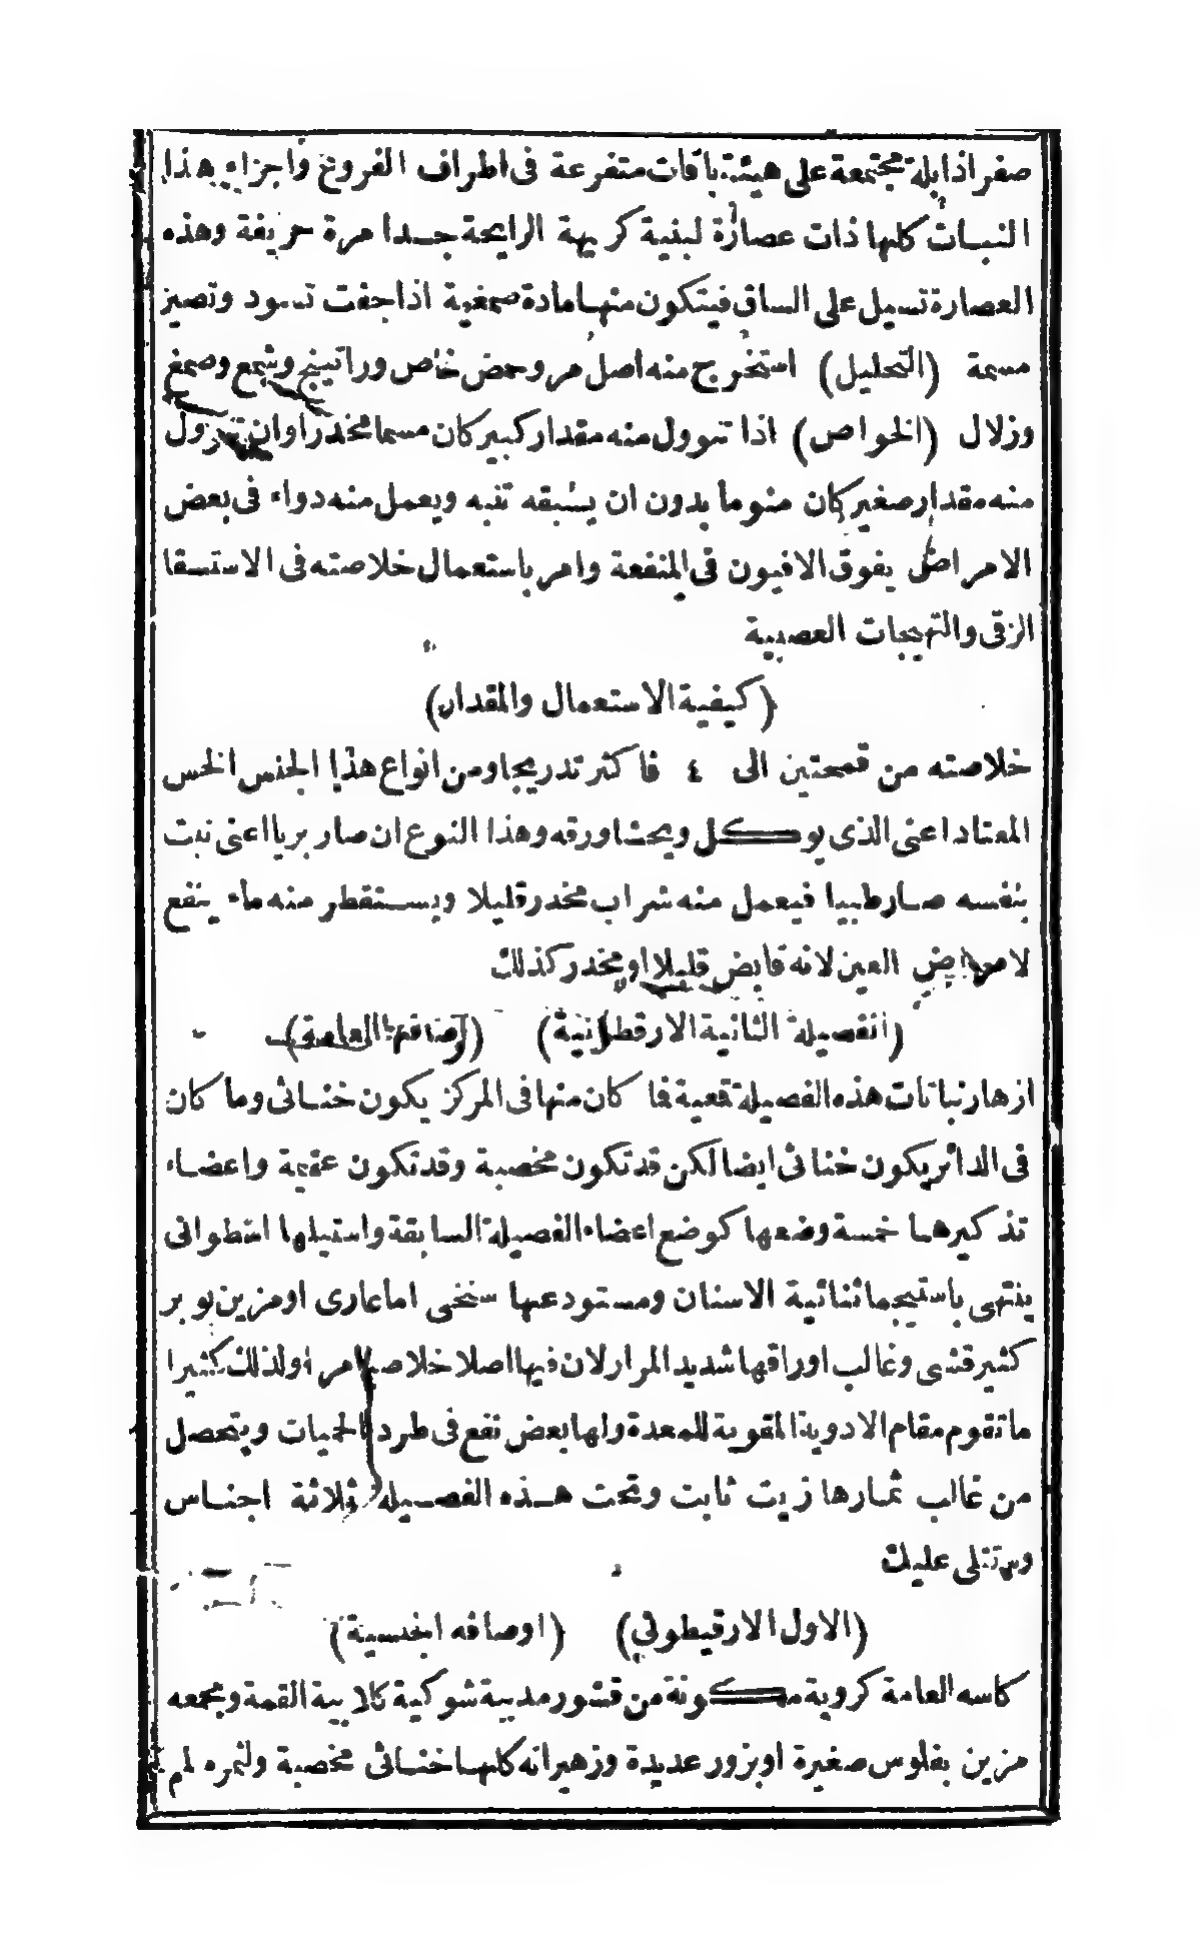 صفر اذابلة مجتمعة على هيئة باقات متفرعة فى اطراف الفروع واجزاء هذا
النبات كلها ذات عصارة لبنية كريهة الرايحة جدا مرة حريفة وهذه
العصارة تسيل على الساق فيتكون منها مادة صمغية اذا جفت تسود وتصير
مسمة (التحليل) استخرج منه اصل مر وحمض خاص وراتينج وشمع وصمغ
وزلال (الخواص) اذا تنوول منه مقدار كبير كان مسما مخدرا وان تنوول
منه مقدار صغير كان منوما بدون ان يسبقه تنبه ويعمل منه دواء فى بعض
الامراض يفوق الافيون فى المنفعة وامر باستعمال خلاصته فى الاستسقا
الزقى والتهيجات العصبية
(كيفية الاستعمال والمقدار)
خلاصته من قمحتين الى ٤ فاكثر تدريجا ومن انواع هذا الجنس الخس
المعتاد اعنى الذى يوكل ويحشا ورقه وهذا النوع ان صار بريا اعنى نبت
بنفسه صار طبيا فيعمل منه شراب مخدر قليلا ويستقطر منه ماء ينفع
لامراض العين لانه قابض قليلا او مخدر كذلك
(الفصيلة الثانية الارقطانية) (اوصافها العامة)
ازهار نباتات هذه الفصيلة قعية فما كان منها فى المركز يكون خنائى وما كان
فى الدائر يكون خنائى ايضا لكن قد تكون مخصبة وقد تكون عقيمة واعضاء
تذكيرها خمسة وضعها كوضع اعضاء الفصيلة السابقة واستيلها اسطوانى
ينتهى باستيجما ثنائية الاسنان ومستودعها سنخى اما عارى او مزين بوبر
كثير قشى وغالب اوراقها شديد المرار لان فيها اصلا خلاصيا مرا ولذلك كثيرا
ما تقوم مقام الادوية المقوية للمعدة ولها بعض نفع فى طرد الحيات ويتحصل
من غالب ثمارها زيت ثابت وتحت هذه الفصيلة ثلاثة اجناس
وستتلى عليك
(الاول الارقيطونى) (اوصافه الجنسية)
كاسه العامة كروية مكونة من قشور مدببة شوكية كلابية القمة ومجمعه
مزين بفلوس صغيرة او بزور عديدة وزهيراته كلها خنائى مخصبة ولثمره لم